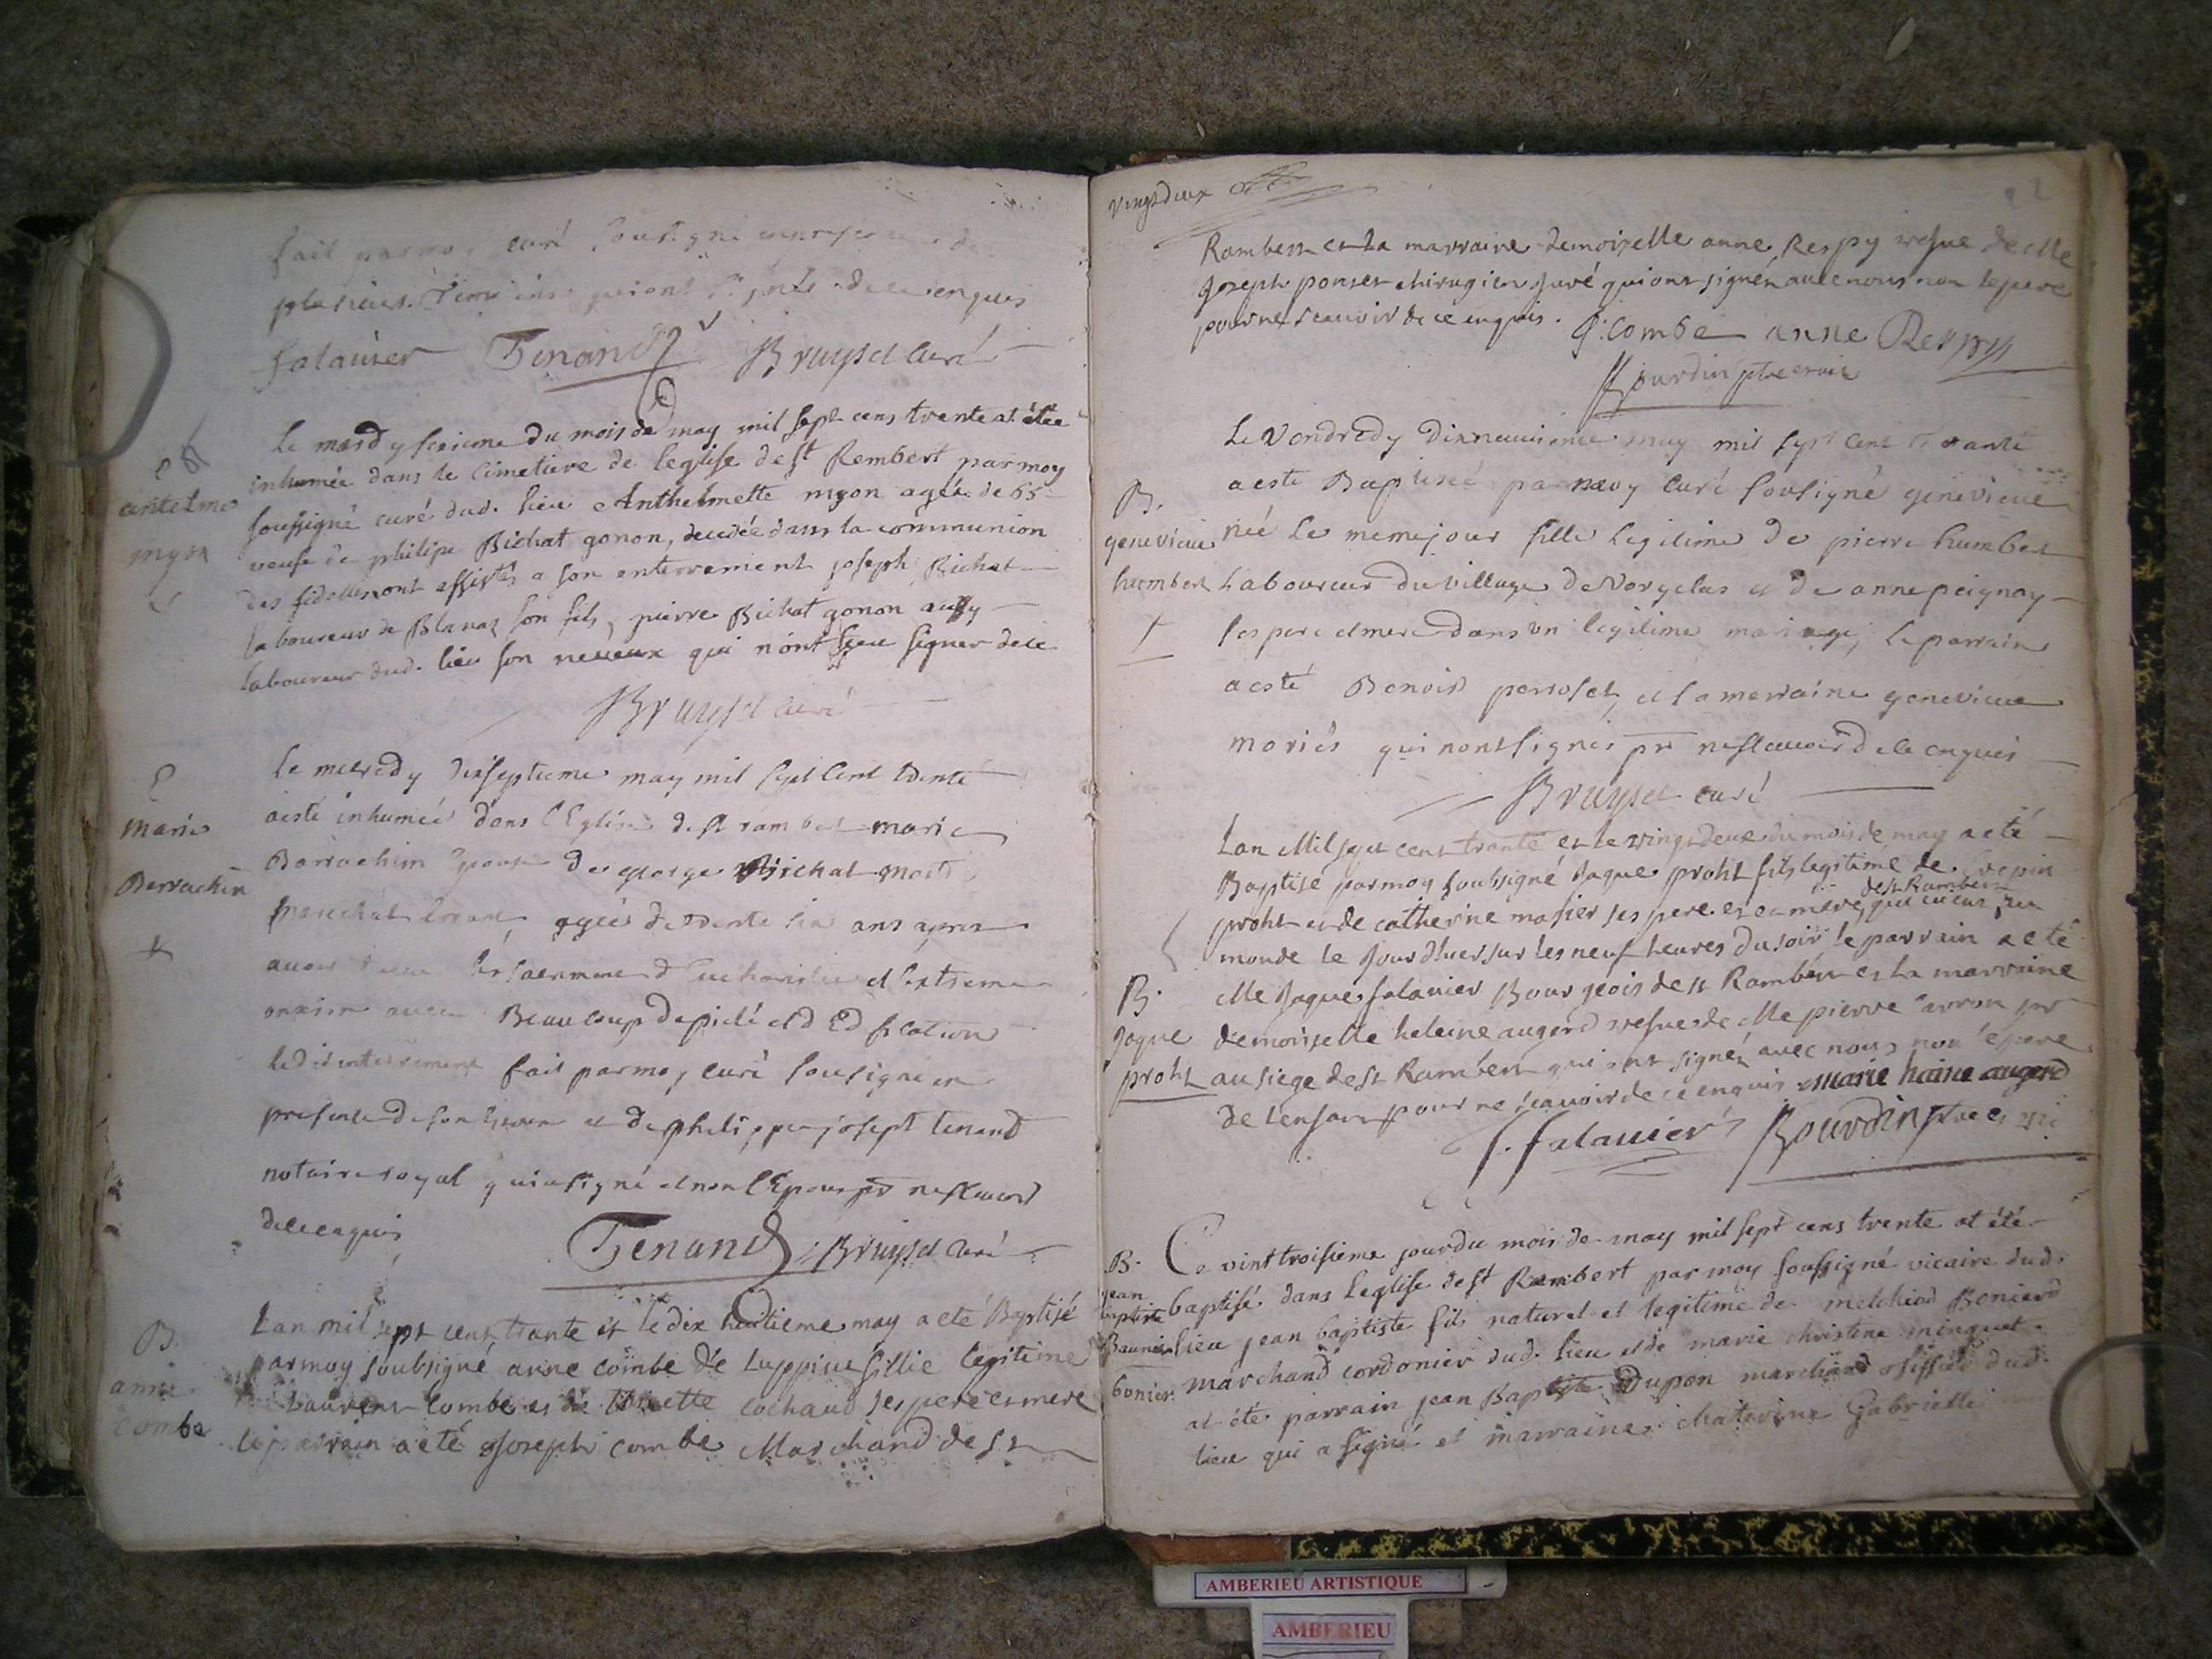 fait par moy curé sousigné en presence de
plusieurs Temoins qui ont de ce enquis
falavier Tenand Bruyset curé
Le mardy sezieme du mois de may mil sept cens trente at étée
inhumée dans le cimetiere de leglise de st Rembert par moy
soussigné curé dud. lieu Anthelmette myon agée de 65
veufe de philipe Bichat gonon, decedée dans la communion
des fidelles, ont assistés a son enterrement joseph Bichat
laboureur de Blanaz son fils, pierre Bichat gonon aussy
laboureur dud. lieu son neveux qui n'ont sceu signer de ce
Bruyset curé
antelme
myon
Le mecredy dixseptieme may mil sept cent trente
a esté inhumée dans l'Eglise de st rambert marie
Barrachin epouse de george Bichat
marechal agée de trente six ans apres
avoir les sacrements d'Eucharistie et d'extreme
onction avec Beaucoup de pieté et d'Edification
ledit enterrement fait par moy curé sousigné en
presence de son et de philippe joseph tenand
notaire royal qui a signé et non l'Epoux pr ne scavoir
de ce enquis
Tenand Bruyset curé
marie
Barrachin
Lan mil sept cent trante et le dix huitieme may a eté Baptisé
par moy soubsigné anne combe de Luppieu fillie legitime
Laurent Combe et de cochaud ses pere et mere
le parrain a eté Joseph combe Marchand de st
B.
anne
combe
vingt deux
Rambert et la marraine demoiselle anne Respy vesve de Me
Joseph ponset chirugien Juré qui ont signéz avec nous non le pere
pour ne scavoir de ce enquis. J. Combe anne Respy
Bourdin ptre et vic
Le Vendredy dixneuvieme may mil sept cent trante
a esté Baptisée par moy curé sousigné genevieve
née le meme jour fille legitime de pierre humbert
Laboureur du village de Vorgelas et de anne peignoy
ses pere et mere dans un legitime mariage, le parrain
a esté Benoist perroset, et la marraine genevieve
mariés qui n'ont signés pr ne scavoir de ce enquis
Bruyset curé
B.
genevieve
humbert
Lan Mil sept cent trante et le vingt deux du mois de may a eté
Baptisé par moy soubsigné Jaque proht fils legitime de
proht et de catherine masier ses pere et mere, de st Rambert
monde le Jour d'hier sur les neuf heures du soir le parrain a eté
Me Jaques falavier Bourgeois de st Rambert et la marraine
demoiselle heleine augerd vesve de Me pierre
au siege de st Rambert qui ont signéz avec nous non le pere
de l'enfant pour ne scavoir de ce enquis marie heine augerd
J. falavier Bourdin ptre et vic
B.
Jaque
proht
Ce vint troisieme jour du mois de may mil sept cens trente at été
baptisé dans leglise de st Rembert par moy soussigné vicaire dud.
lieu jean baptiste fils naturel et legitime de melchiod Bonierd
marchand cordonier dud. lieu et de marie christine minguet.
at été parrain jean Baptiste Dupon marchand dud.
lieu qui a signé et marraine Chaterine Gabrielle
B.
jean
baptiste
bonier
AMBERIEU ARTISTIQUE
AMBERIEU